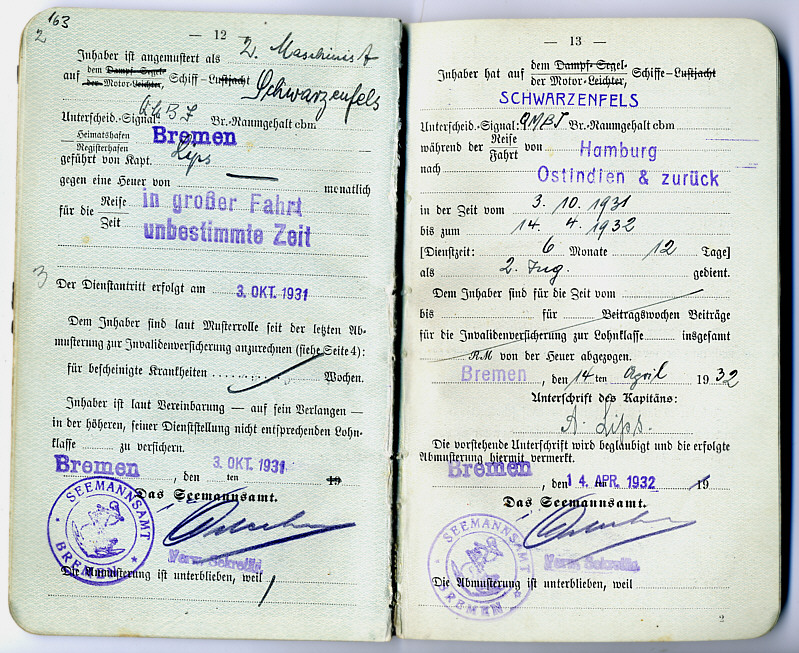 163
2
— 12 —
Inhaber ist angemustert als 2. Maschinist
auf dem Dampf-Segel- Schiff-Lustjacht Schwarzenfels
der Motor-Leichter,
Unterscheid.-Signal: QMBJ Br.-Raumgehalt cbm
Heimatshafen Bremen
Registerhafen
geführt von Kapt. Lips
gegen eine Heuer von — monatlich
für die Reise in großer Fahrt
Zeit unbestimmte Zeit
3
Der Dienstantritt erfolgt am 3. OKT. 1931
Dem Inhaber sind laut Musterrolle seit der letzten Ab-
musterung zur Invalidenversicherung anzurechnen (siehe Seite 4):
für bescheinigte Krankheiten .......... Wochen.
Inhaber ist laut Vereinbarung — auf sein Verlangen —
in der höheren, seiner Dienststellung nicht entsprechenden Lohn-
klasse zu versichern.
Bremen, den 3. OKT. 1931 ten 19
Das Seemannsamt.
SEEMANNSAMT
BREMEN
Verw. Sekretär
Die Abmusterung ist unterblieben, weil
— 13 —
Inhaber hat auf dem Dampf-Segel- Schiffe-Lustjacht
der Motor-Leichter,
SCHWARZENFELS
Unterscheid.-Signal: QMBJ Br.-Raumgehalt cbm
während der Reise von Hamburg
Fahrt
nach Ostindien & zurück
in der Zeit vom 3. 10. 1931
bis zum 14. 4. 1932
[Dienstzeit: 6 Monate 12 Tage]
als 2. Ing. gedient.
Dem Inhaber sind für die Zeit vom
bis für Beitragswochen Beiträge
für die Invalidenversicherung zu Lohnklasse insgesamt
RM von der Heuer abgezogen.
Bremen, den 14 ten April 1932
Unterschrift des Kapitäns:
A. Lips.
Die vorstehende Unterschrift wird beglaubigt und die erfolgte
Abmusterung hiermit vermerkt.
Bremen, den 14. APR. 1932 19
Das Seemannsamt.
SEEMANNSAMT
BREMEN
Verw. Sekretär
Die Abmusterung ist unterblieben, weil
2